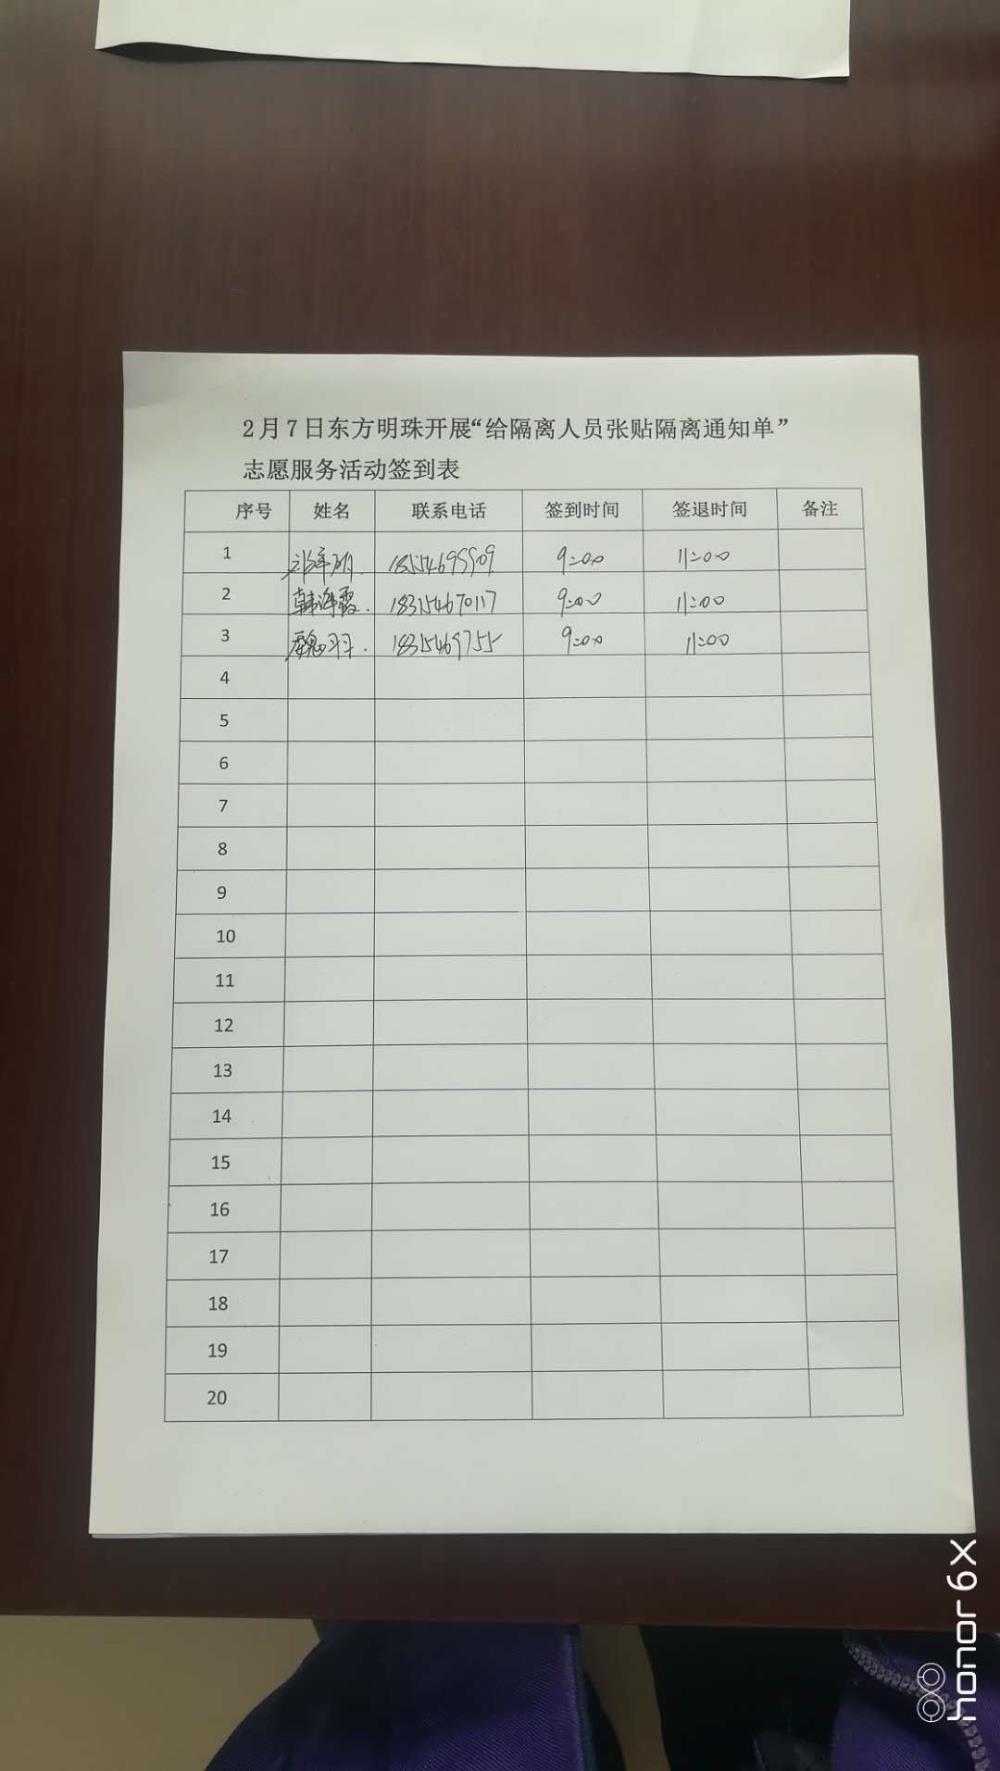 2月7日东方明珠开展“给隔离人员张贴隔离通知单”
志愿服务活动签到表
序号 姓名 联系电话 签到时间 签退时间 备注
1 9:00 11:00
2 韩海霞. 18315467017 9:00 11:00
3 魏羽. 1835469755 9:00 11:00
4
5
6
7
8
9
10
11
12
13
14
15
16
17
18
19
20
honor 6X